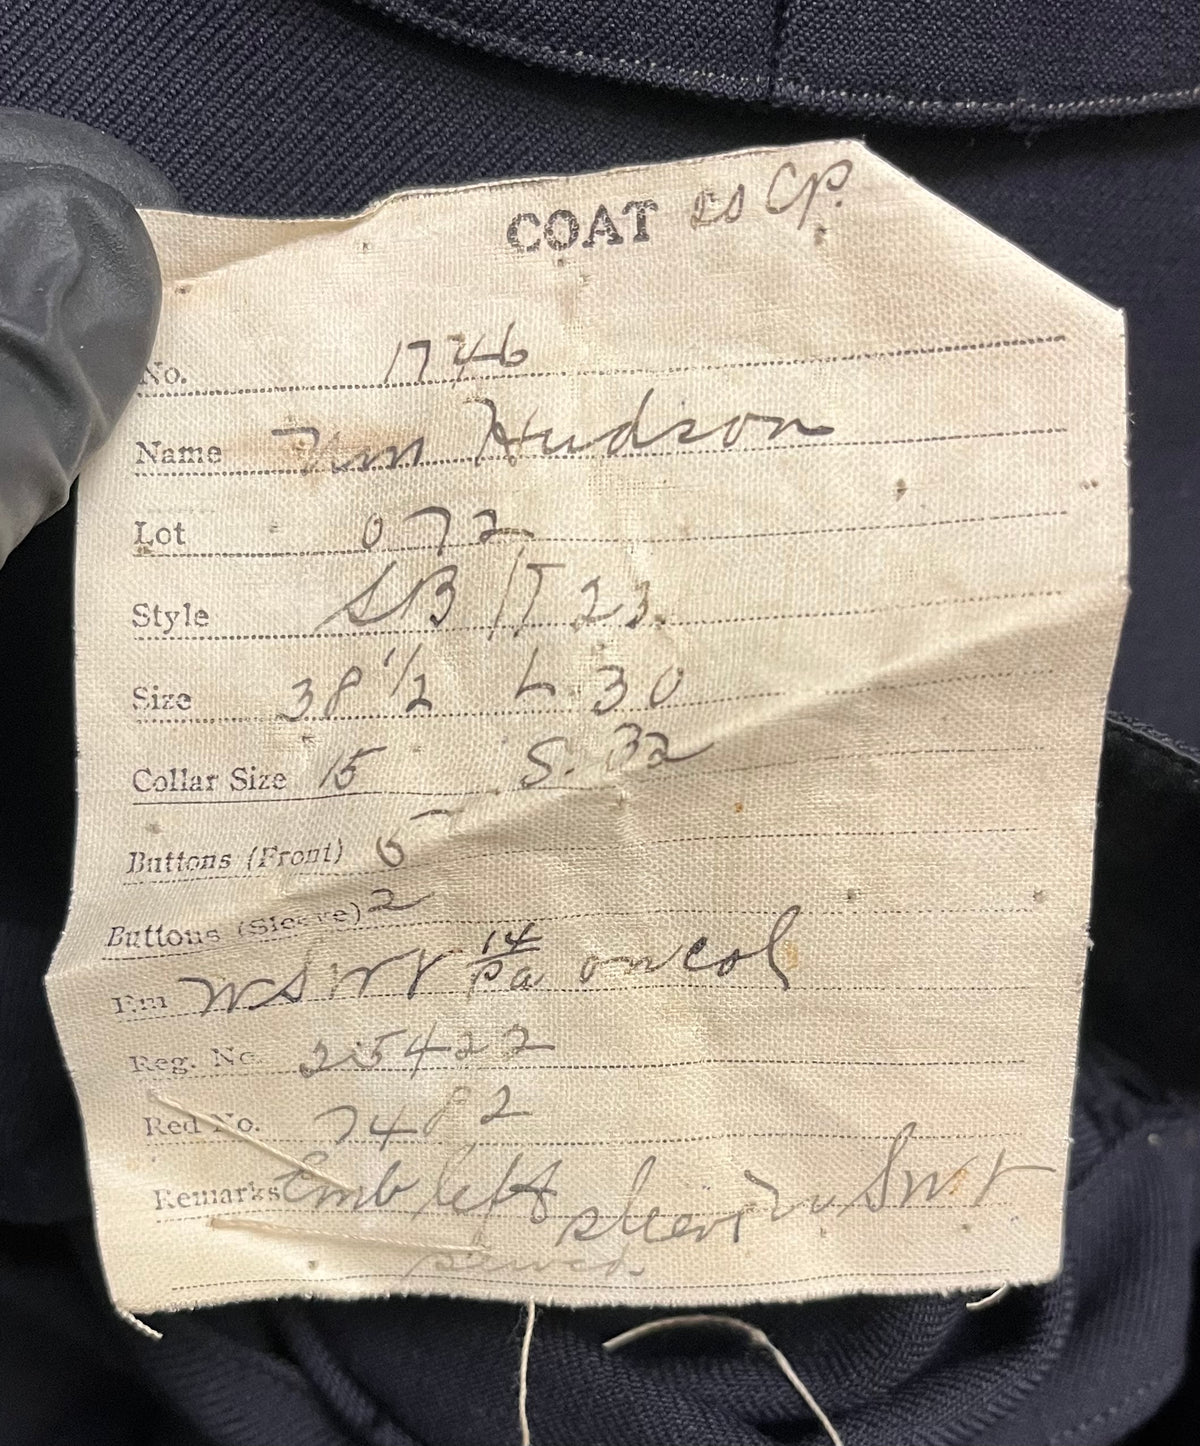 COAT Cp.
No. 1746
Name Wm Hudson
Lot 072
Style SB 1T 23.
Size 38 1/2 L. 30
Collar Size 15 S. 32
Buttons (Front) 5
Buttons (Sleeve) 2
Em 14 on col
Reg. No. 25422
Red No. 7482
Remarks Emb left sleeve